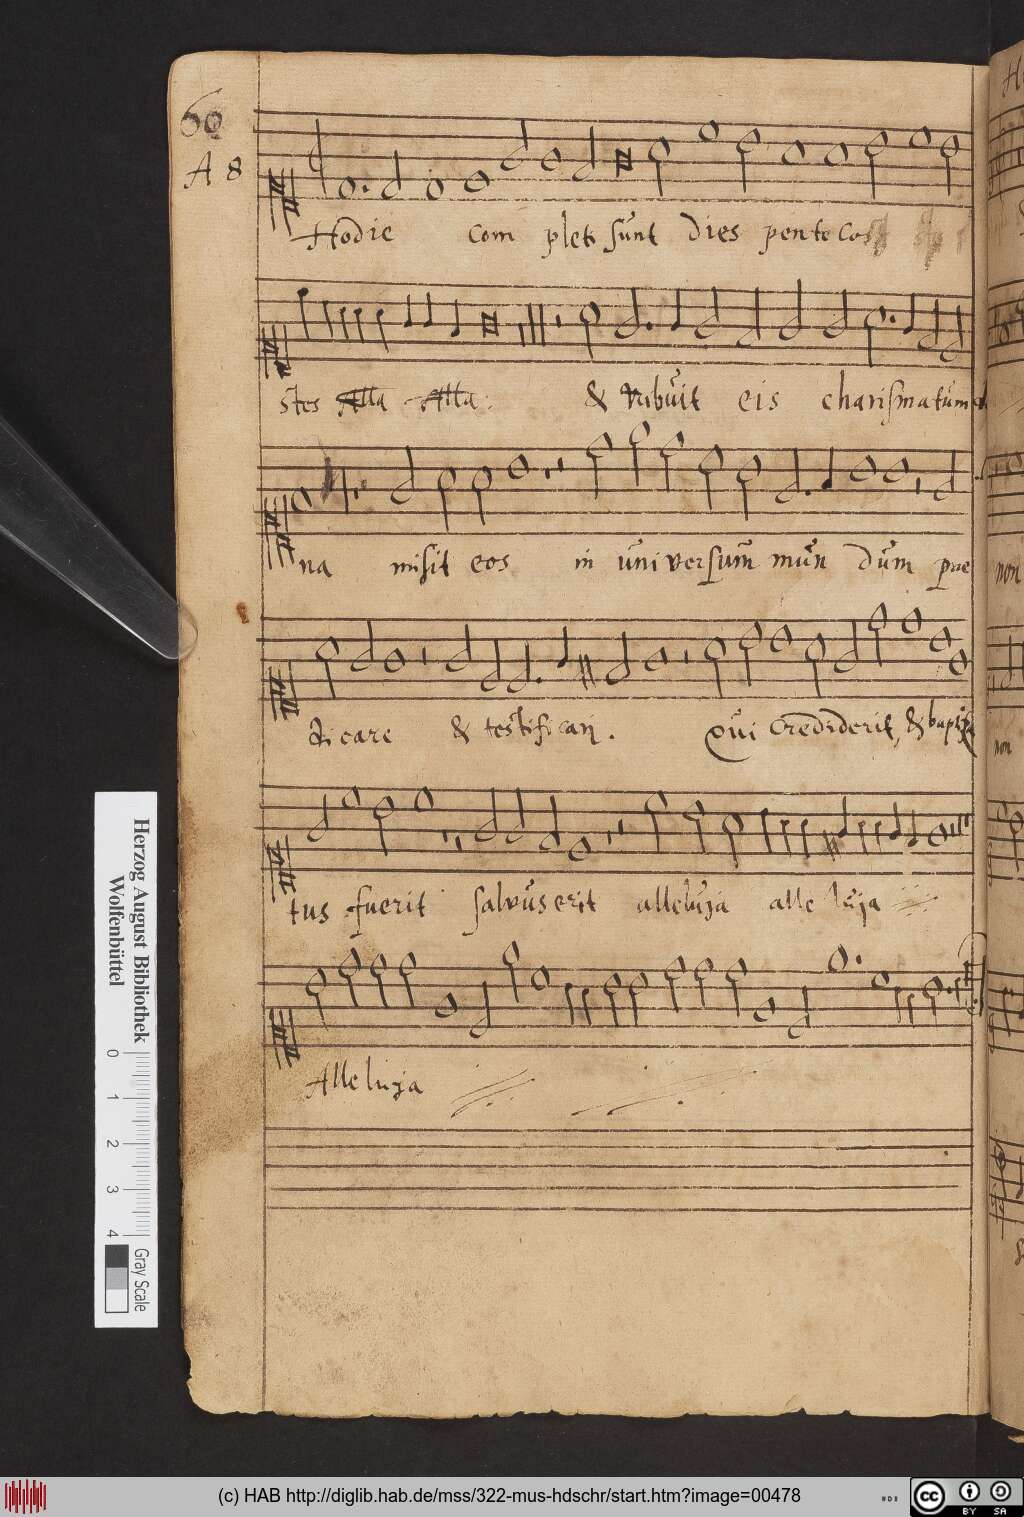 60
A 8
Hodie com pleti sunt dies pente cos
stes Alla Alla.
& tribuit eis charismatum
na misit eos in universum mun dum prae
dicare & testificari. qui crediderit, & baptiza
tus fuerit salvus erit alleluja alle luja
Alleluja
H
non
non
Herzog August Bibliothek
Wolfenbüttel
0 1 2 3 4
Gray Scale
(c) HAB http://diglib.hab.de/mss/322-mus-hdschr/start.htm?image=00478
cc BY SA